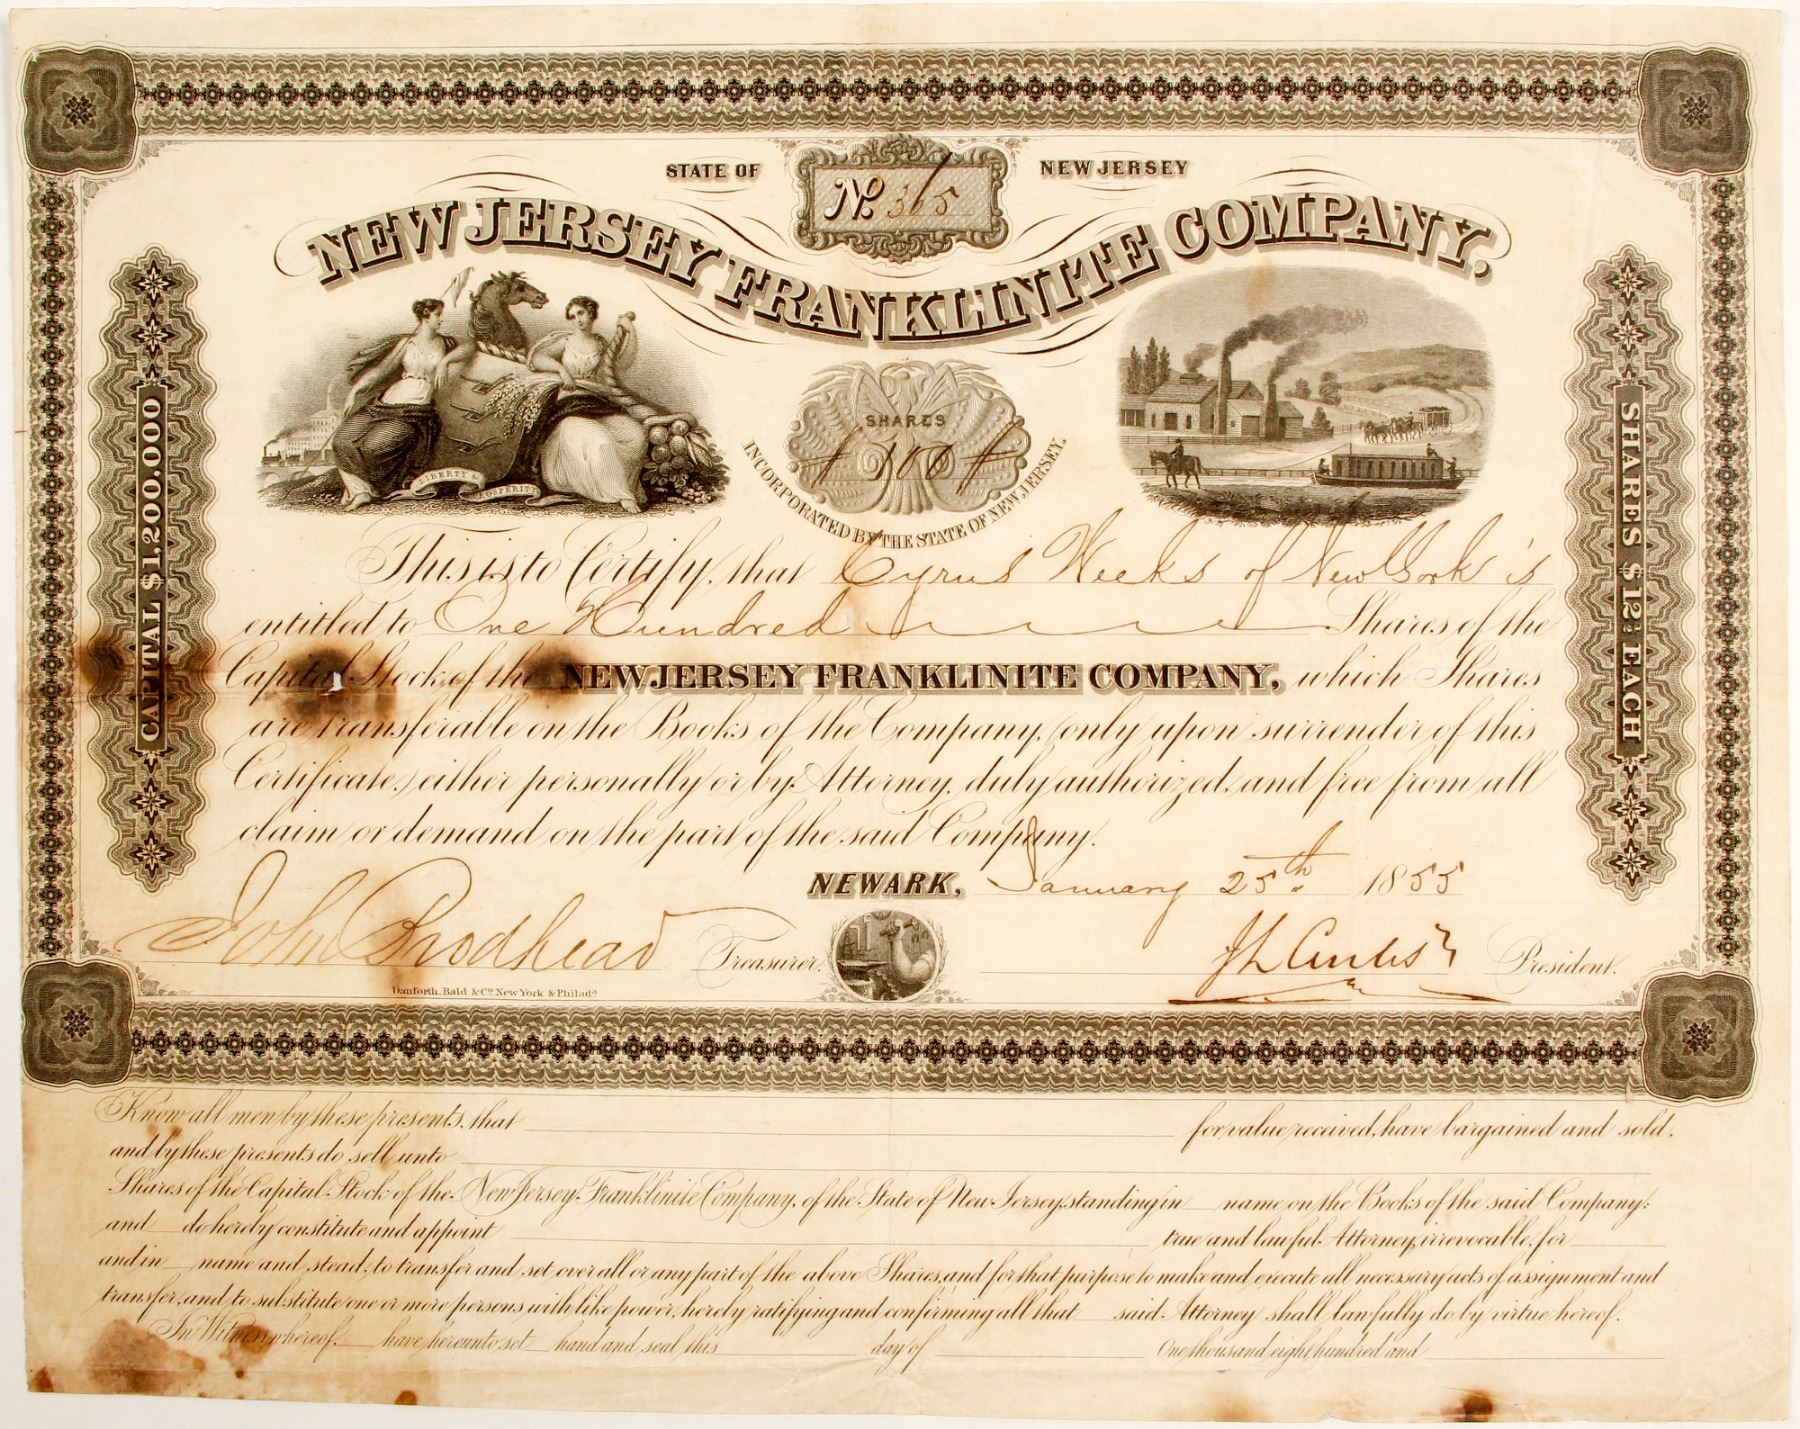 STATE OF NEW JERSEY
No. 365
NEW JERSEY FRANKLINITE COMPANY,
LIBERTY & PROSPERITY
SHARES
100
INCORPORATED BY THE STATE OF NEW JERSEY.
CAPITAL $1,200,000
SHARES $12 EACH
This is to Certify, that Cyrus Weeks of New York is
entitled to One Hundred Shares of the
Capital Stock of the NEW JERSEY FRANKLINITE COMPANY, which Shares
are transferable on the Books of the Company, (only upon surrender of this
Certificate,) either personally or by Attorney, duly authorized, and free from all
claim or demand on the part of the said Company.
NEWARK, January 25th 1855
John Brodhead Treasurer. J L Curtis President.
Danforth, Bald & Co. New York & Philada.
Know all men by these presents, that for value received, have bargained and sold,
and by these presents do sell unto
Shares of the Capital Stock of the New Jersey Franklinite Company, of the State of New Jersey, standing in name on the Books of the said Company:
and do hereby constitute and appoint true and lawful Attorney, irrevocable, for
and in name and stead, to transfer and set over all or any part of the above Shares, and for that purpose to make and execute all necessary acts of assignment and
transfer, and to substitute one or more persons with like power, hereby ratifying and confirming all that said Attorney shall lawfully do by virtue hereof.
In Witness whereof, have hereunto set hand and seal this day of One thousand eight hundred and